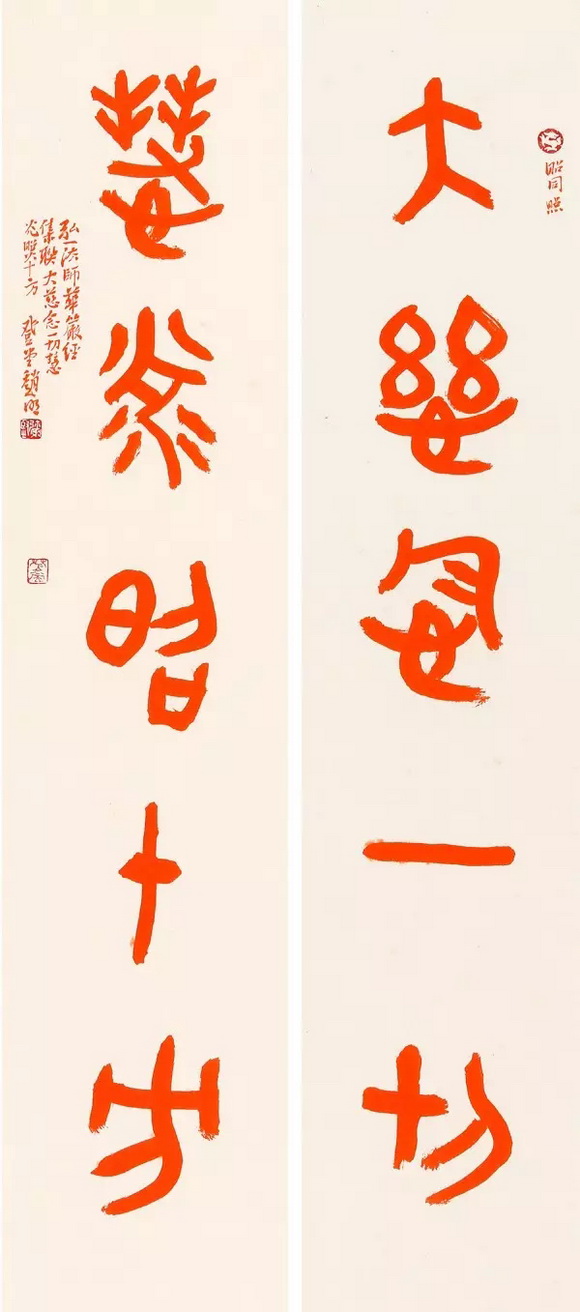 大慈念一切
昭同照
慧炎昭十方
弘一法師華嚴經
集聯大慈念一切慧
光照十方 登堂趙明